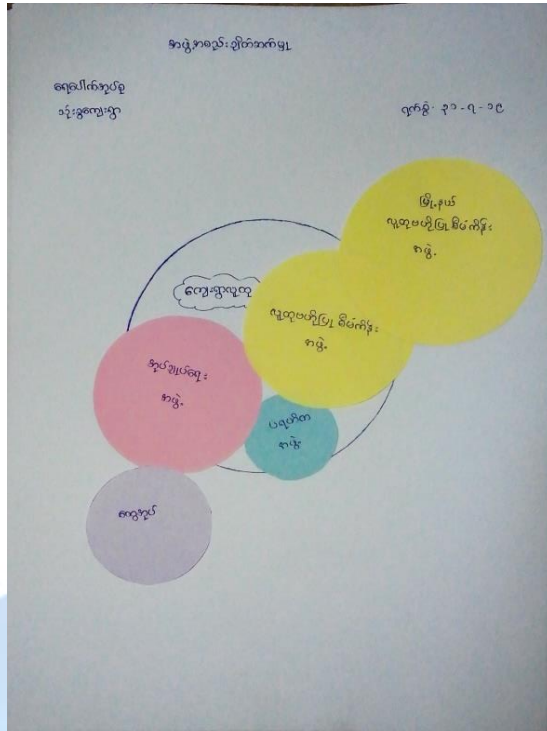 အဖွဲ့အစည်းချိတ်ဆက်မှု
ရေပေါက်အုပ်စု
သုံးခွကျေးရွာ
ရက်စွဲ - ၃၁-၇-၁၉
မြို့နယ်
လူထုဗဟိုပြုစီမံကိန်း
အဖွဲ့
ကျေးရွာလူထု
လူထုဗဟိုပြုစီမံကိန်း
အဖွဲ့
အုပ်ချုပ်ရေး
အဖွဲ့
ပရဟိတ
အဖွဲ့
ကျေးအုပ်